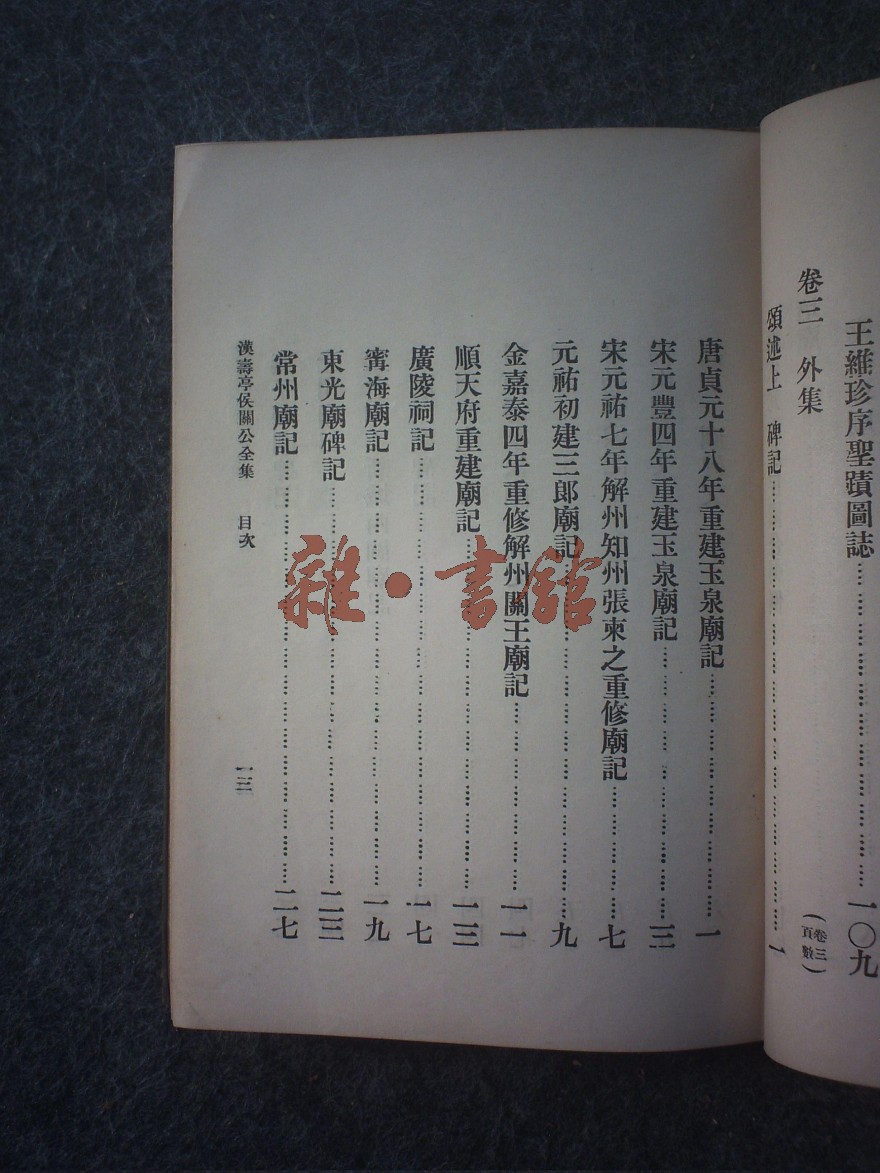 王維珍序聖蹟圖誌……一〇九
卷三 外集
(卷三頁數)
頌述上 碑記……1
唐貞元十八年重建玉泉廟記……一
宋元豐四年重建玉泉廟記……三
宋元祐七年解州知州張柬之重修廟記……七
元祐初建三郎廟記……九
金嘉泰四年重修解州關王廟記……一一
順天府重建廟記……一三
廣陵祠記……一七
寗海廟記……一九
東光廟碑記……二三
常州廟記……二七
漢壽亭侯關公全集 目次 一三
雜·書館